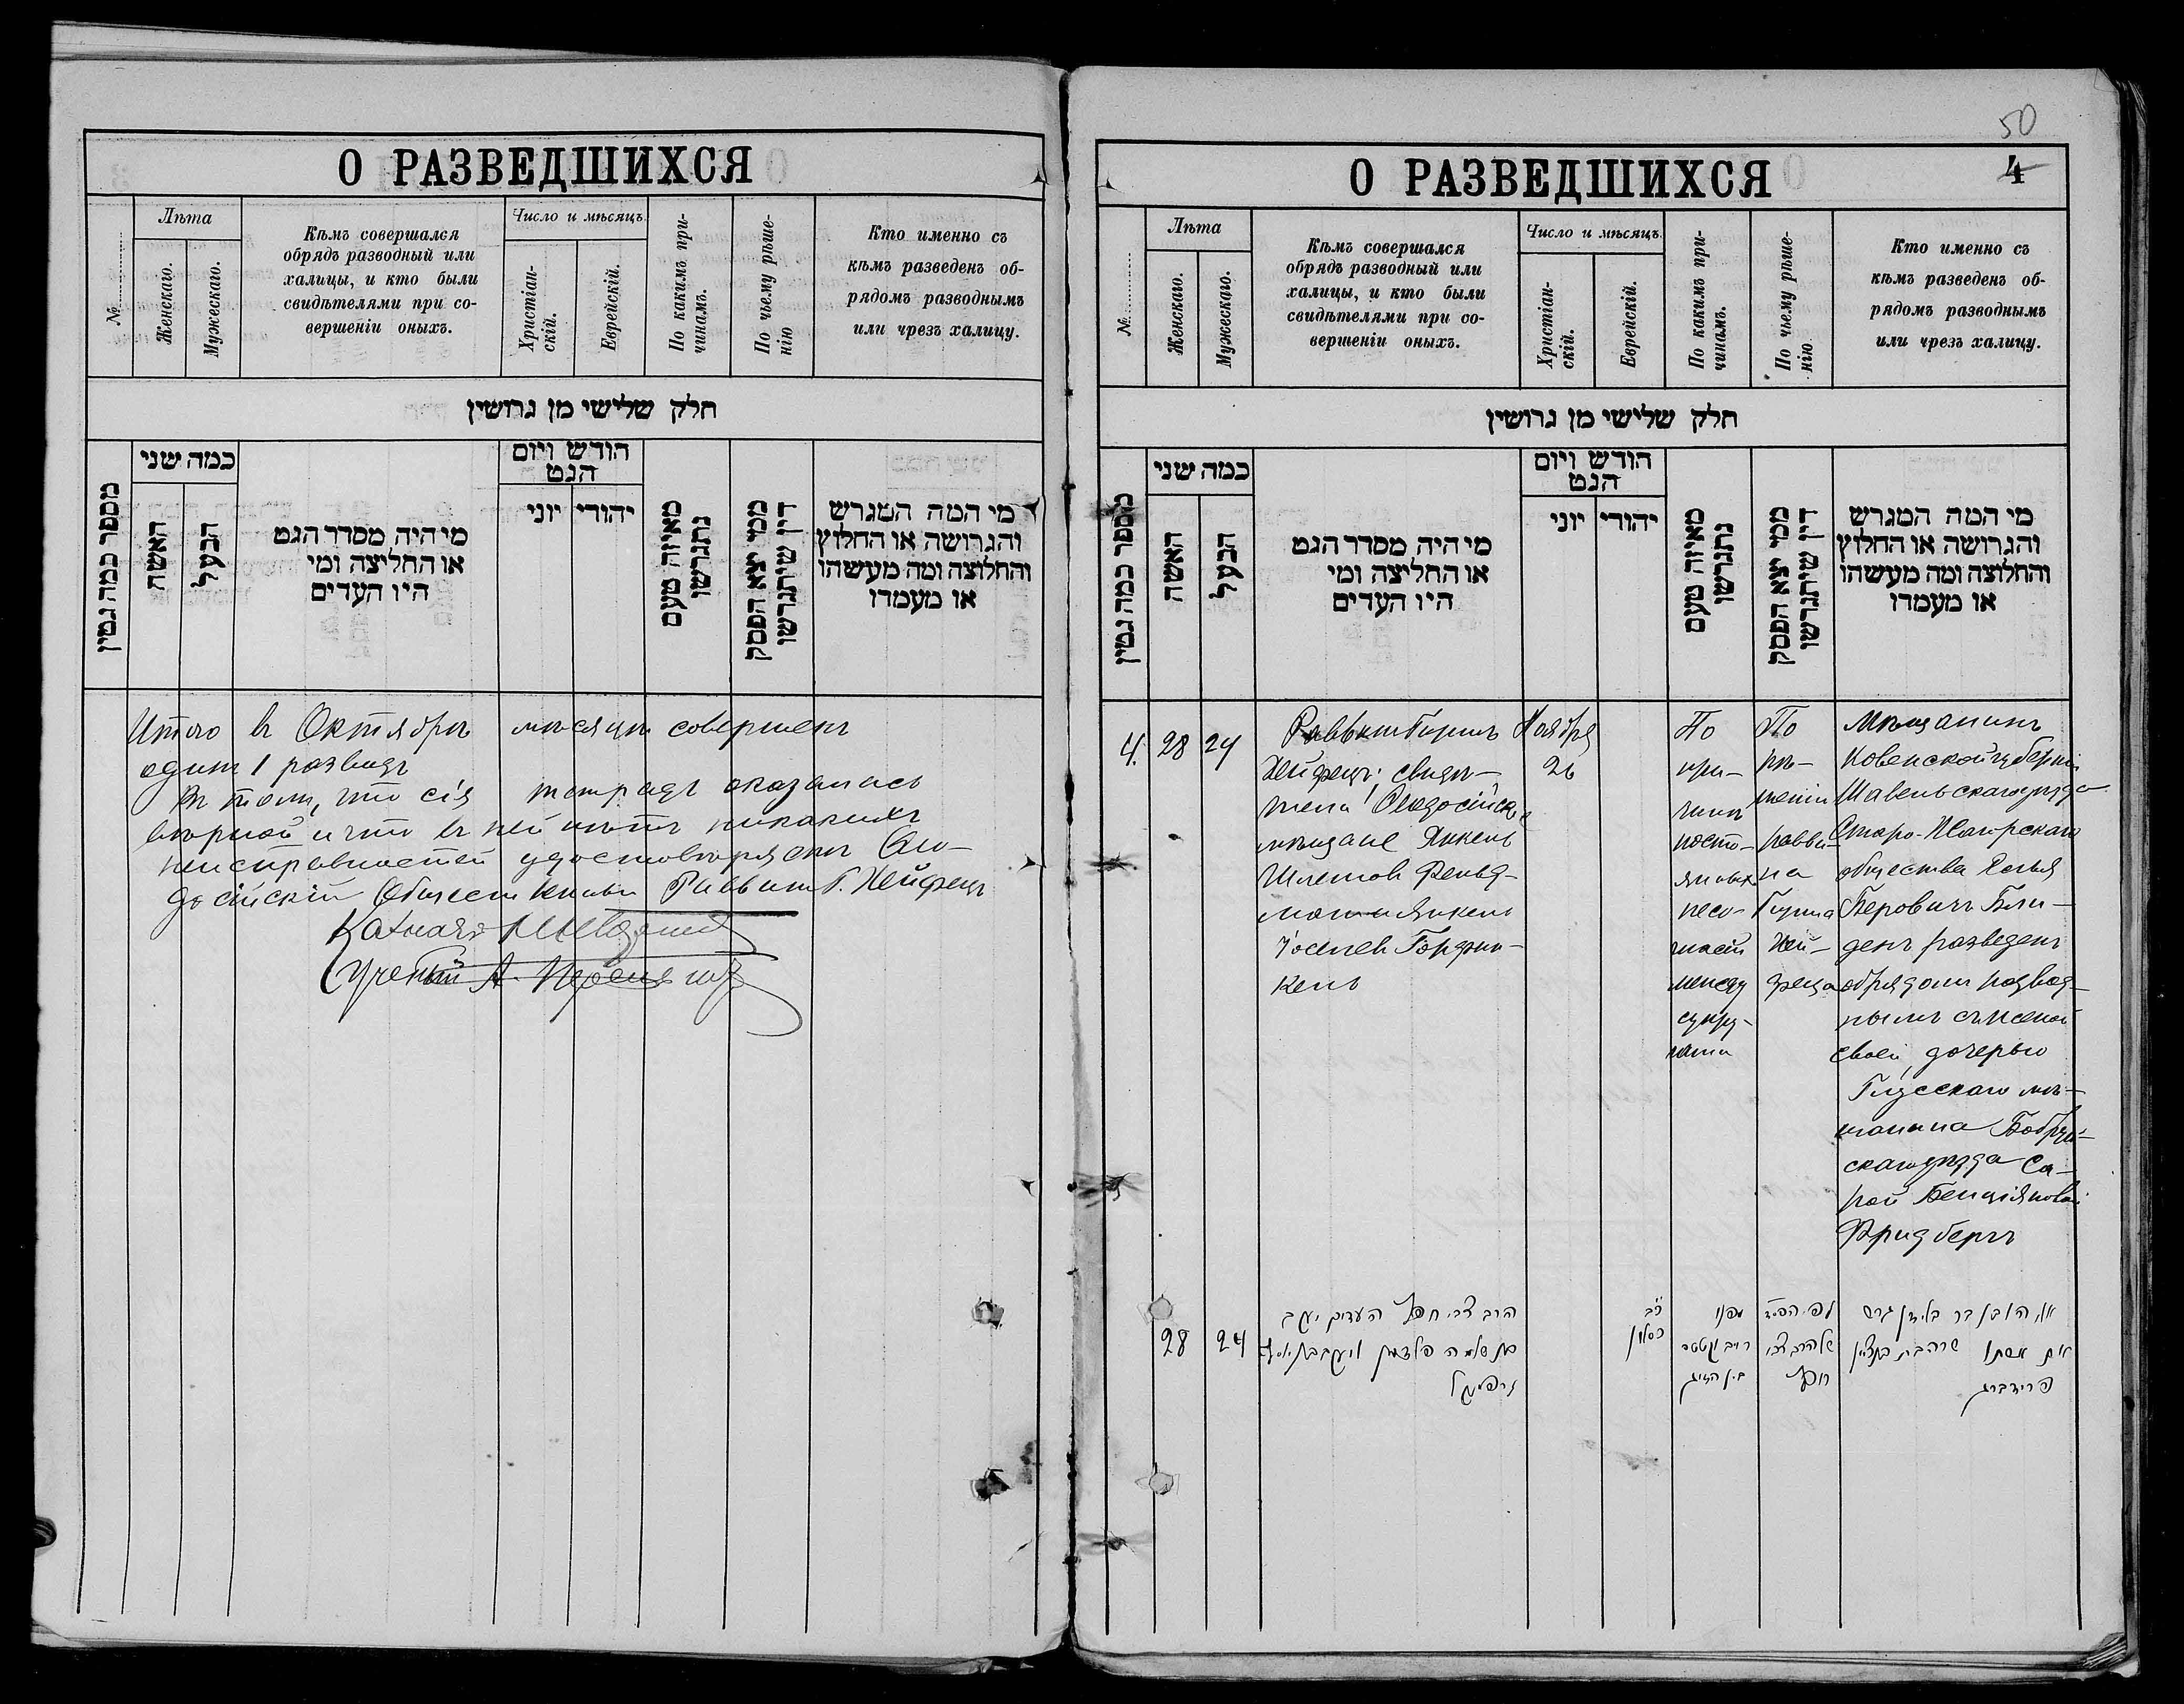 О РАЗВЕДШИХСЯ
№
Лѣта
Женскаго.
Мужескаго.
Кѣмъ совершался
обрядъ разводный или
халицы, и кто были
свидѣтелями при со-
вершеніи оныхъ.
Число и мѣсяцъ.
Христіан-
скій.
Еврейскій.
По какимъ при-
чинамъ.
По чьему рѣше-
нію
Кто именно съ
кѣмъ разведенъ об-
рядомъ разводнымъ
или чрезъ халицу.
חלק שלישי מן גרושין
מספר כמה גטין
כמה שני
האשה
הבעל
מי היה מסדר הגט
או החליצה ומי
היו העדים
הודש ויום
הגט
יוני
יהודי
מאיזה טעם
נתגרשו
ממי יצא הפסק
דין שיתגרשו
מי המה המגרש
והגרושה או החלוץ
והחלוצה ומה מעשהו
או מעמדו
Итого въ Октябрѣ мѣсяцѣ совершенъ
одинъ 1 разводъ
Въ томъ, что сія тетрадь оказалась
вѣрной и что въ ней нѣтъ никакихъ
неисправностей удостовѣряемъ Ѳео-
досійскій Общественный Раввинъ Г. Хейфецъ
Казначей
Ученый А.
50
4
О РАЗВЕДШИХСЯ
№
Лѣта
Женскаго.
Мужескаго.
Кѣмъ совершался
обрядъ разводный или
халицы, и кто были
свидѣтелями при со-
вершеніи оныхъ.
Число и мѣсяцъ.
Христіан-
скій.
Еврейскій.
По какимъ при-
чинамъ.
По чьему рѣше-
нію
Кто именно съ
кѣмъ разведенъ об-
рядомъ разводнымъ
или чрезъ халицу.
חלק שלישי מן גרושין
מספר כמה גטין
כמה שני
האשה
הבעל
מי היה מסדר הגט
או החליצה ומי
היו העדים
הודש ויום
הגט
יוני
יהודי
מאיזה טעם
נתגרשו
ממי יצא הפסק
דין שיתגרשו
מי המה המגרש
והגרושה או החלוץ
והחלוצה ומה מעשהו
או מעמדו
4.
28
24
Раввинъ Гиршъ
Хейфецъ; свидѣ-
тели Ѳеодосійскіе
мѣщане Янкель
Шлемов Фельд-
манъ и Янкель
Іоселев Горфин-
кель
Ноября
26
По
при-
чинѣ
посто-
янныхъ
несо-
гласій
между
супру-
гами
По
рѣ-
шенію
рабби-
на
Гирша
Хей-
феца
Мѣщанинъ
Ковенской губерніи
Шавельскаго уѣзда
Старо-Жагорскаго
общества
Беровичъ Бли-
денъ разведенъ
обрядомъ развод-
нымъ съ женой
своей, дочерью
Глусскаго мѣ-
щанина Бобруй-
скаго уѣзда Са-
рой Бенціяновой
Фридбергъ
28
24
הרב צבי חפץ העדים יעקב
בן שלמה פלדמן ויעקב בן יוסף
גרפינקל
כ״ב
כסלו
מפני
ריב וקטטה
בין הזוג
לפי הפס״ד
של הרב צבי
חפץ
בן בר בלידן גרש
את אשתו שרה בת בנציון
פרידברג